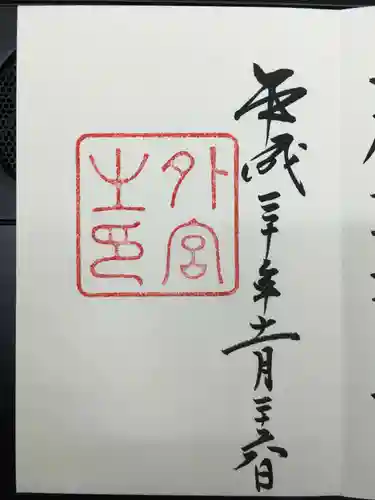 平成三十年十二月二十六日
外宮
之印